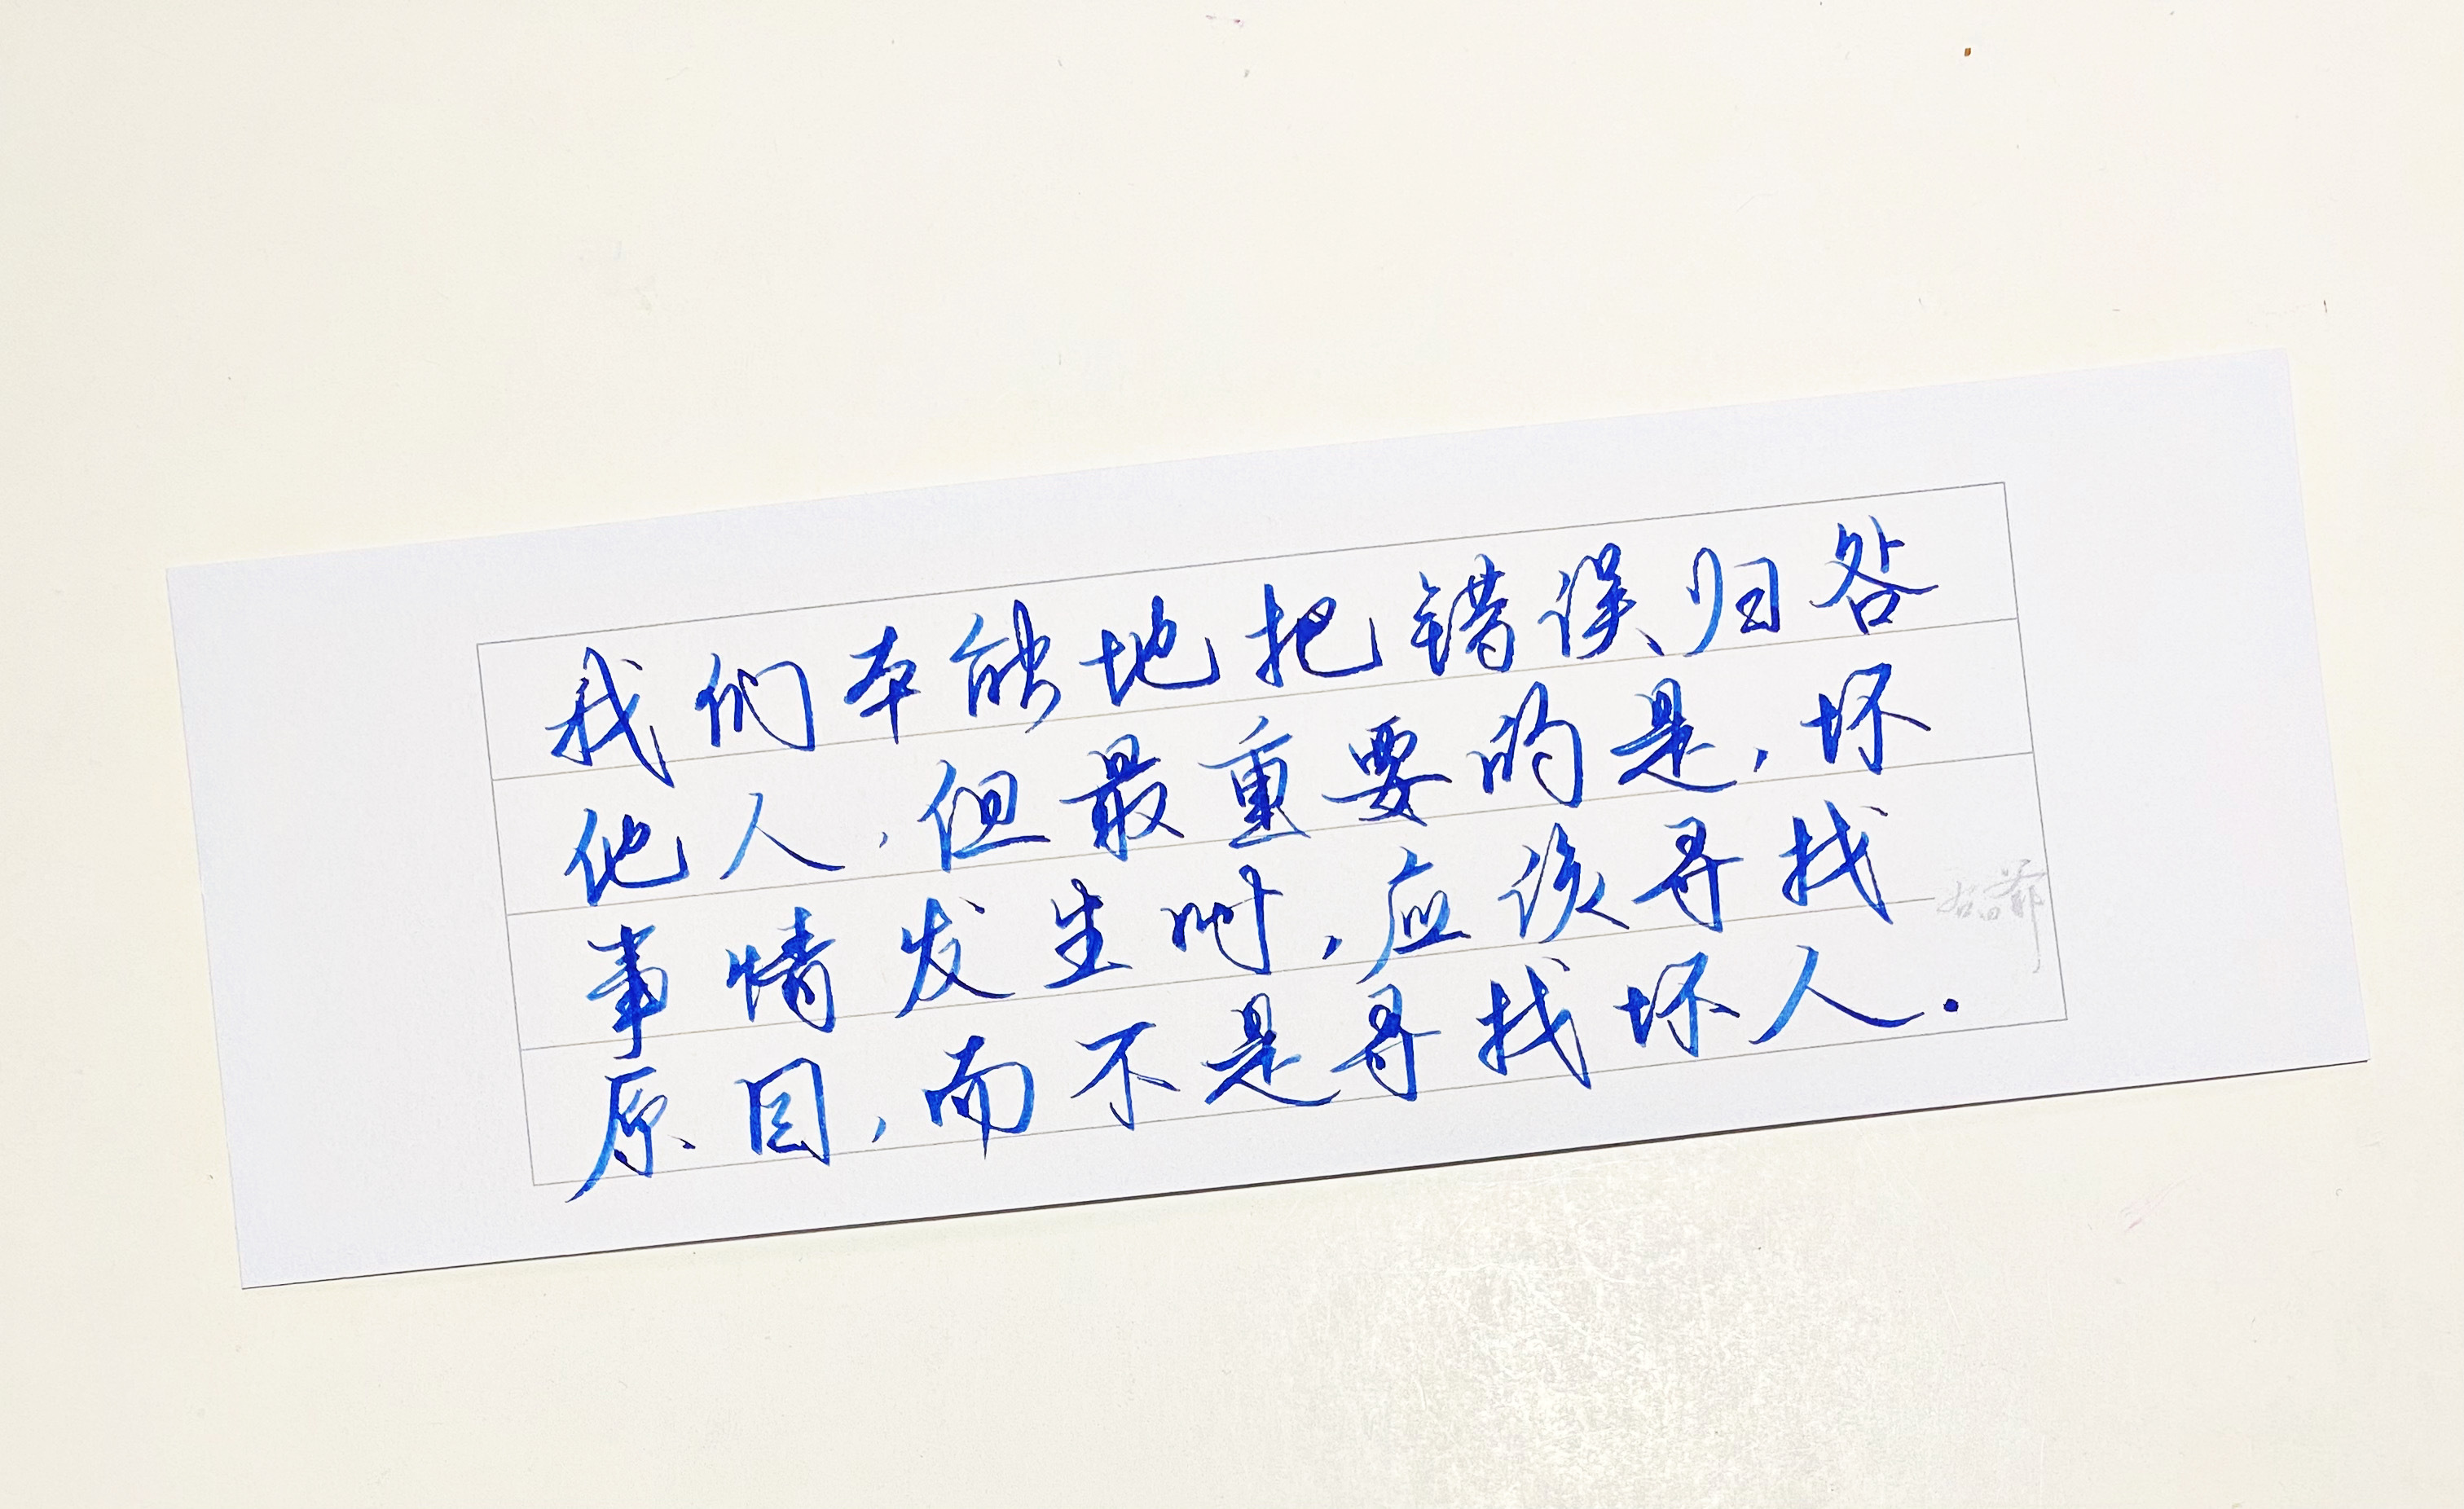 我们本能地把错误归咎
他人，但最重要的是，坏
事情发生时，应该寻找
原因，而不是寻找坏人．